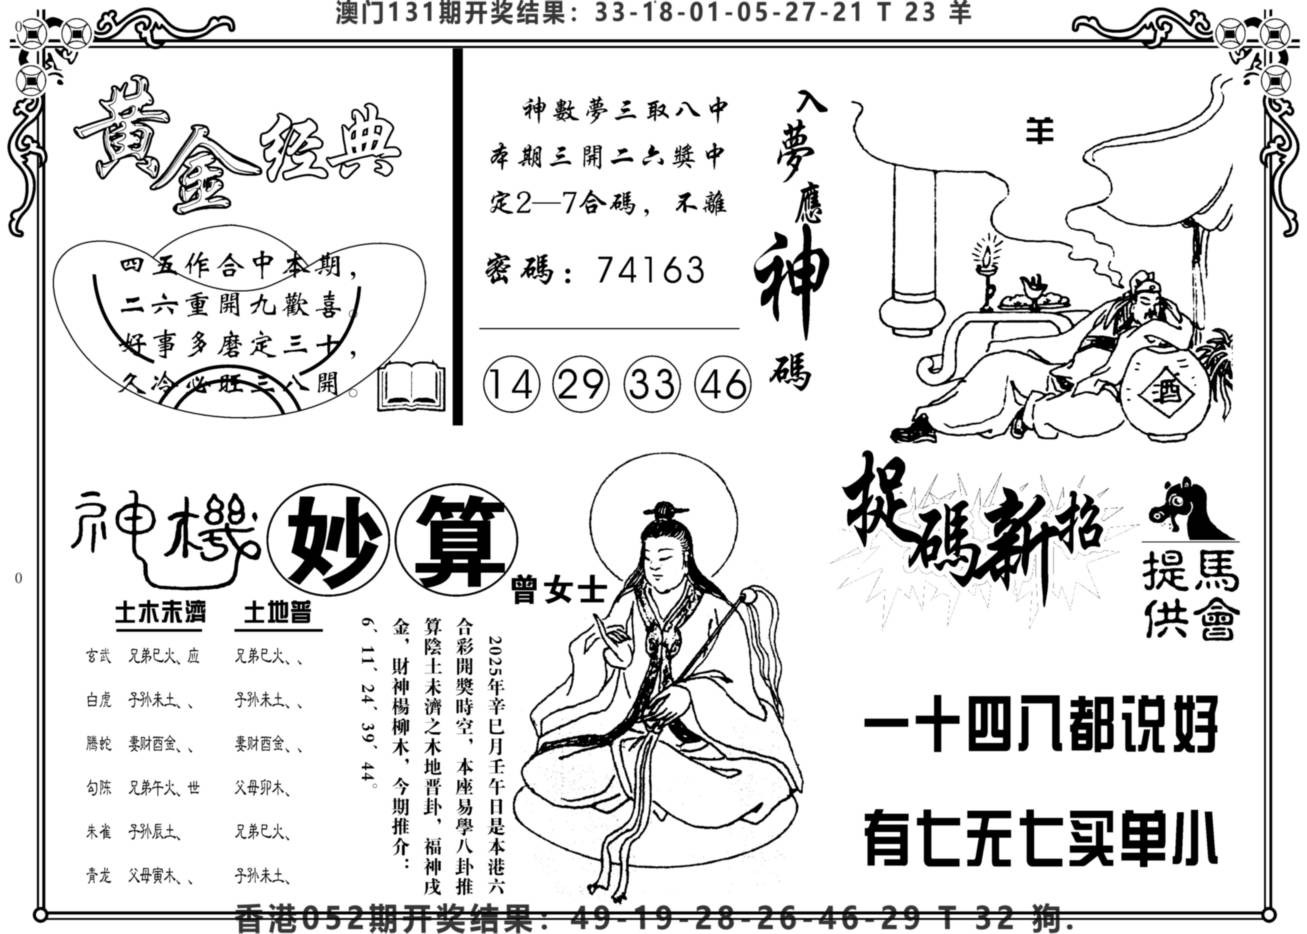 澳门131期开奖结果：33-18-01-05-27-21 T 23 羊
黄金经典
四五作合中本期，
二六重開九歡喜。
好事多磨定三十，
久冷必旺三八開。
神數夢三取八中
本期三開二六獎中
定2—7合碼，不離
密碼：74163
14 29 33 46
入夢應神碼
羊
酒
神機妙算
曾女士
土木未濟 土地普
玄武 兄弟巳火、应 兄弟巳火、、
白虎 子孙未土、、 子孙未土、、
騰蛇 妻财酉金、、 妻财酉金、、
勾陈 兄弟午火、世 父母卯木、
朱雀 子孙辰土、 兄弟巳火、
青龙 父母寅木、、 子孙未土、
2025年辛巳月壬午日是本港六
合彩開獎時空，本座易學八卦推
算陰土未濟之木地晋卦，福神戌
金，財神楊柳木，今期推介：
6、11、24、39、44。
捉碼新招
馬會提供
一十四八都说好
有七无七买单小
香港052期开奖结果：49-19-28-26-46-29 T 32 狗.
0
0